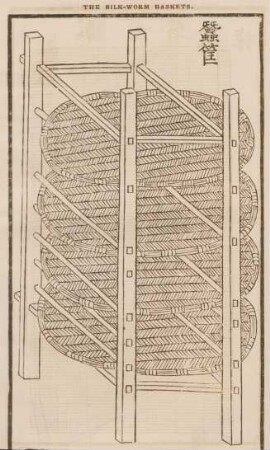 THE SILK-WORM BASKETS.
蠶筐